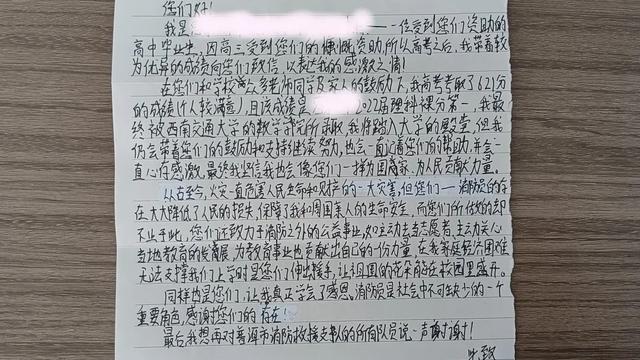 您们好!
我是 一位受到您们资助的
高中毕业生,因高三受到您们的慷慨资助所以高考之后,我带着较
为优异的成绩向您们致信,以表达我的感激之情!
在您们和学校众多老师同学及家人的鼓励下,我高考考取了621分
的成绩(个人较满意),且该成绩是 2022届理科 分第一,我最
终被西南交通大学的数学 所录取,我将踏入大学的殿堂,但我
仍会带着您们的鼓励和支持继续努力,也会一直记着您们的帮助,并会一
直心存感激,最终我坚信我也会像您们一样为国 家、为人民贡献力量。
从古至今,火灾一直危害人民生命和财产的一大灾害,但您们——消防员的存
在大大降低了人民的损失,保障了我和周围亲人的生命安全,而您们所做的却
不止于此,您们还致力于消防之外的公益事业,如主动去当志愿者,主动关心
当地教育的发展,为教育事业也贡献出自己的一份力量,在我家庭经济困难
无法支撑我们上学时是您们伸出援手,让祖国的花朵能在校园里盛开。
同样也是您们,让我真正学会了感恩。消防员是社会中不可缺少的一个
重要角色,感谢您们的存在!
最后我想再对普洱市消防救援支队的所有队员说一声谢谢!
此致